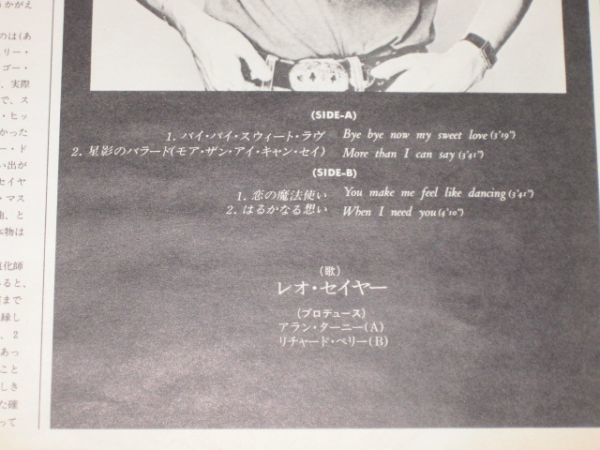 うかがえ
のは(あ
リー・
ゴー・
、実際
で、ス
・ヒッ
かった
ー・ド
い出が
セイヤ
・マス
曲、と
本物は
道化師
ると、
まで
縁し
、2
あっ
こと
しき
た確
って
(SIDE-A)
1. バイ・バイ・スウィート・ラヴ Bye bye now my sweet love (3'19")
2. 星影のバラード(モア・ザン・アイ・キャン・セイ) More than I can say (3'41")
(SIDE-B)
1. 恋の魔法使い You make me feel like dancing (3'41")
2. はるかなる想い When I need you (4'10")
(歌)
レオ・セイヤー
(プロデュース)
アラン・ターニー(A)
リチャード・ペリー(B)